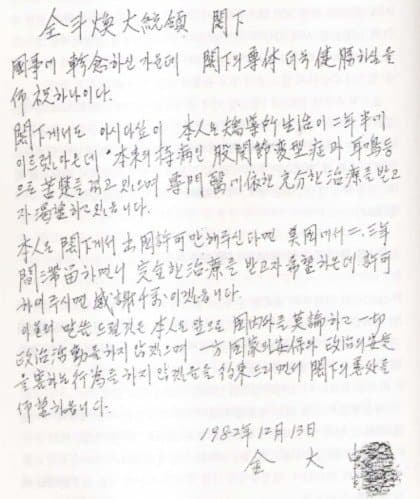 全斗煥大統領 閣下
國事에 軫念하신 가운데 閣下의 尊体 더욱 健勝하심을
仰祝하나이다.
閣下께서도 아시다싶이 本人은 矯導所生活이 二年半에
이르렀아온데 本來의 持病인 股關節変型症과 耳鳴等
으로 苦楚를 겪고 있으며 專門醫에 依한 充分한 治療를 받고
자 渴望하고 있읍니다.
本人은 閣下께서 出國許可만 해주신다면 美國에서 二,三年
間 滯留하면서 完全한 治療를 받고자 希望하온데 許可
하여 주시면 感謝千萬이겠읍니다.
아울러 말씀드릴것은 本人은 앞으로 國內外를 莫論하고 一切
政治活動을 하지 않겠으며 一方 國家의 安保와 政治의 安定
을 害하는 行為를 하지 않겠음을 約束드리면서 閣下의 善処를
仰望하옵니다.
1982年 12月 13日
金大中